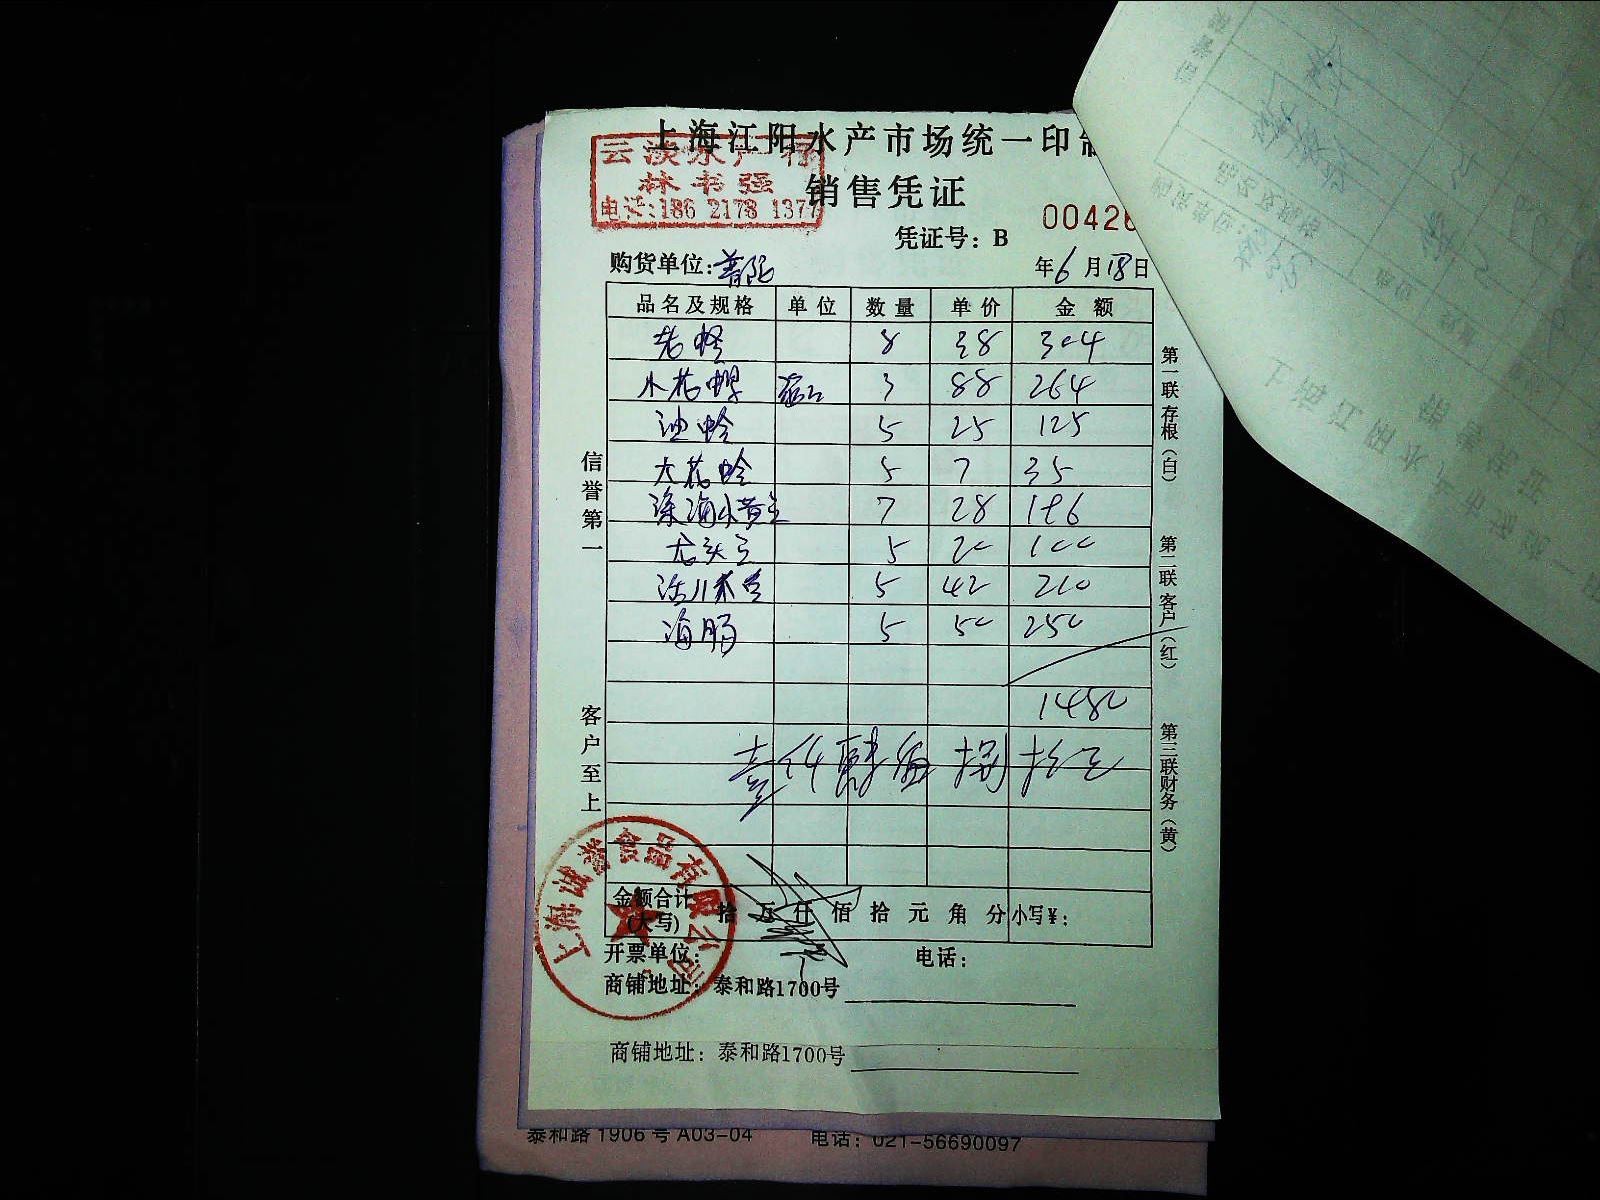 上海江阳水产市场统一印制
云淡水产行
林书强
电话:186 2178 1377
销售凭证
00426
凭证号：B
购货单位:普陀
年6月18日
品名及规格 单位 数量 单价 金额
老蛏 8 38 304
小花螺 3 88 264
油蛤 5 25 125
大花蛤 5 7 35
深海小黄鱼 7 28 196
龙头鱼 5 20 100
5 42 210
海肠 5 50 250
1480
壹仟肆佰捌拾元
信誉第一
客户至上
第一联存根（白）
第二联客户（红）
第三联财务（黄）
上海诚誉食品有限公司
金额合计(大写) 拾 万 仟 佰 拾 元 角 分 小写¥：
开票单位： 电话：
商铺地址：泰和路1700号
商铺地址：泰和路1700号
泰和路1906号A03-04 电话：021-56690097